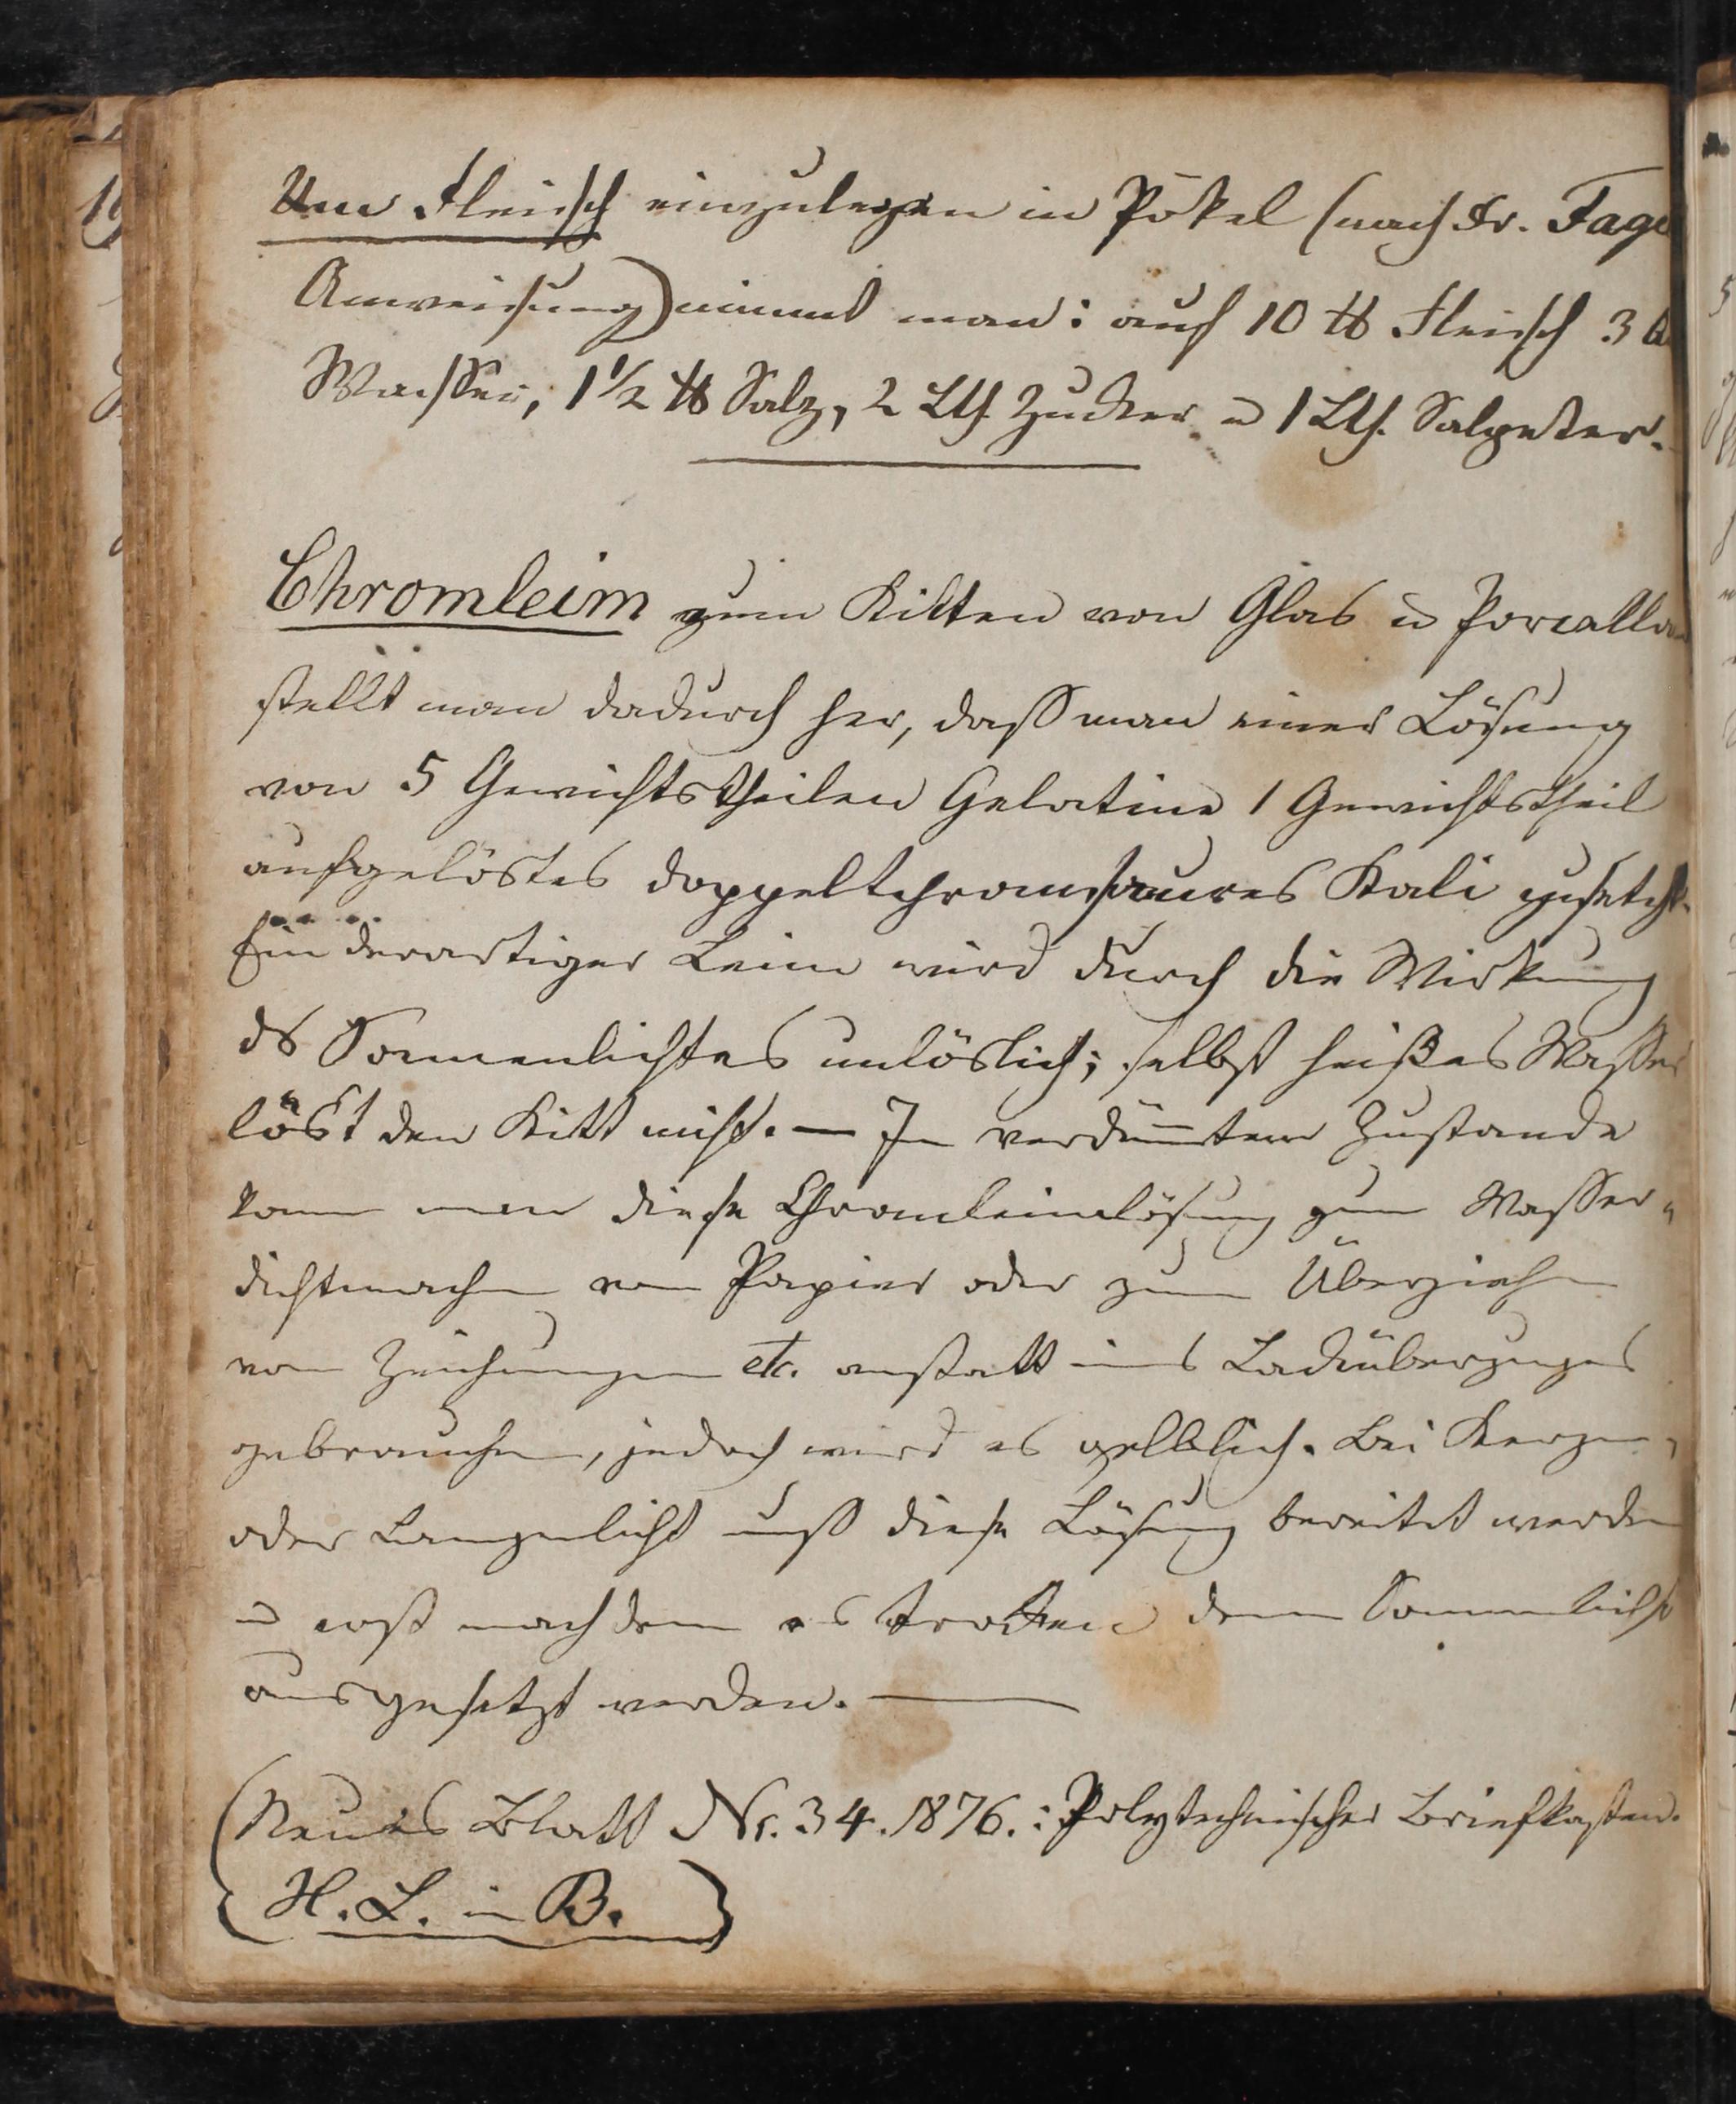 Um Fleisch einzulegen in Pökel (nach Fr. Fage
Anweisung) nimmt man: auf 10 ℔ Fleisch 3
Wasser, 1½ ℔ Salz, 2 Lth. Zucker u 1 Lth. Salpeter.
Chromleim zum Kitten von Glas u Porcellan
stellt man dadurch her, daß man einer Lösung
von 5 Gewichtstheilen Gelatine 1 Gewichtstheil
aufgelöstes doppeltchromsaures Kali zusetzt.
Ein derartiger Leim wird durch die Wirkung
ds Sonnenlichtes unlöslich; selbst heißes Wasser
löst den Kitt nicht. — In verdünntem Zustande
kann man diese Chromleimlösung zum Wasser-
dichtmachen von Papier oder zum Überziehen
von Zeichnungen etc. anstatt eines Lacküberzuges
gebrauchen, jedoch wird es gelblich. Bei Kerzen-
oder Lampenlicht muß diese Lösung bereitet werden
u erst nachdem es trocken dem Sonnenlicht
ausgesetzt werden. —
(Neues Blatt Nr. 34. 1876.: Polytechnischer Briefkasten.
H. L. in B.)